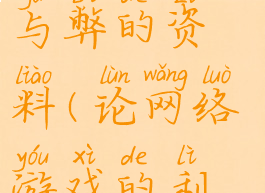 与弊的资
liào lùn wǎng luò
料(论网络
yóu xì de lì
游戏的利